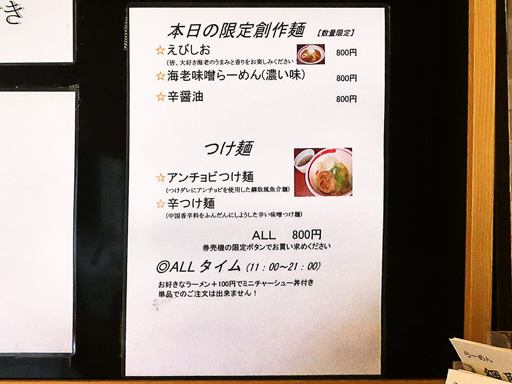 き
本日の限定創作麺 【数量限定】
☆えびしお 800円
(皆、大好き海老のうまみと香りをお楽しみください
☆海老味噌らーめん(濃い味) 800円
☆辛醤油 800円
つけ麺
☆アンチョビつけ麺
(つけダレにアンチョビを使用した綱取風魚介麺)
☆辛つけ麺
(中国香辛料をふんだんにしようした辛い味噌つけ麺)
ALL 800円
券売機の限定ボタンでお買い求めください
◎ALLタイム(11：00～21：00)
お好きなラーメン＋100円でミニチャーシュー丼付き
単品でのご注文は出来ません！
らーめん